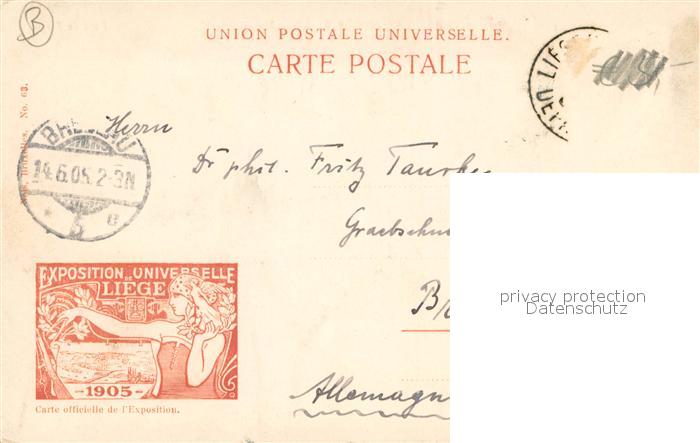 B
UNION POSTALE UNIVERSELLE.
CARTE POSTALE
LIEGE
No. 63.
Herrn
BRESLAU
14.6.05. 2-3N
* 5 e
Dr phil. Fritz
B
EXPOSITION DE UNIVERSELLE
LIEGE
1905
Carte officielle de l'Exposition.
Allemagn
privacy protection
Datenschutz